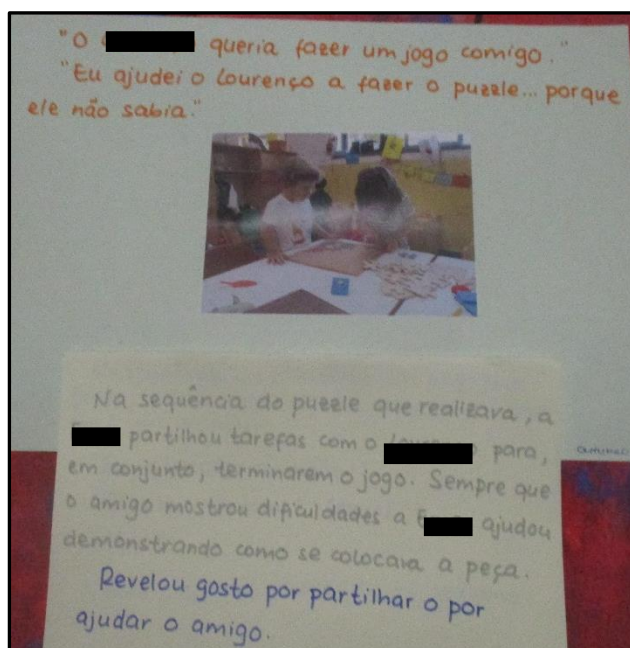 "O queria fazer um jogo comigo."
"Eu ajudei o Lourenço a fazer o puzzle... porque
ele não sabia."
Na sequência do puzzle que realizava, a
partilhou tarefas com o para,
em conjunto, terminarem o jogo. Sempre que
o amigo mostrou dificuldades a ajudou
demonstrando como se colocava a peça.
Revelou gosto por partilhar o por
ajudar o amigo.